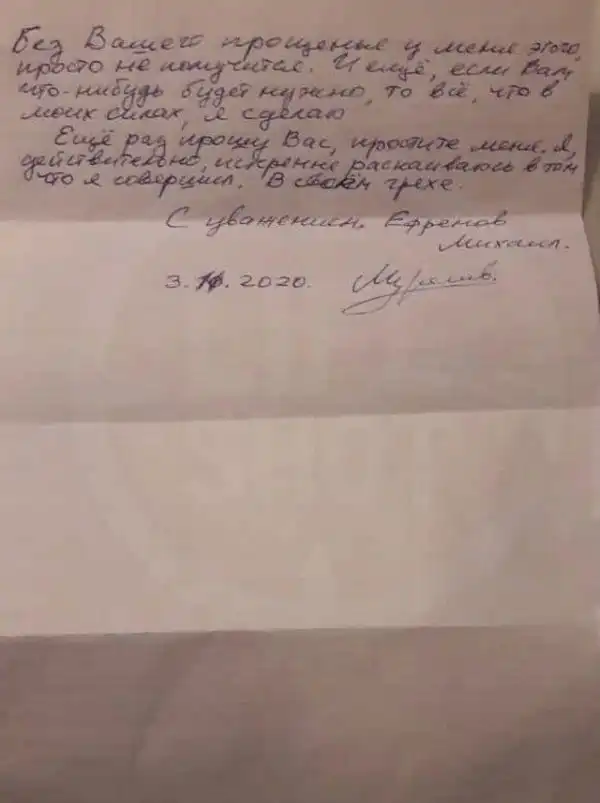 Без Вашего прощенье у меня этого
просто не получится. И ещё, если Вам
что-нибудь будет нужно, то всё, что в
моих силах, я сделаю
Ещё раз прошу Вас, простите меня. Я,
действительно, искренне раскаиваюсь в том
что я совершил. В своём грехе.
С уважением. Ефремов
Михаил.
3. . 2020.